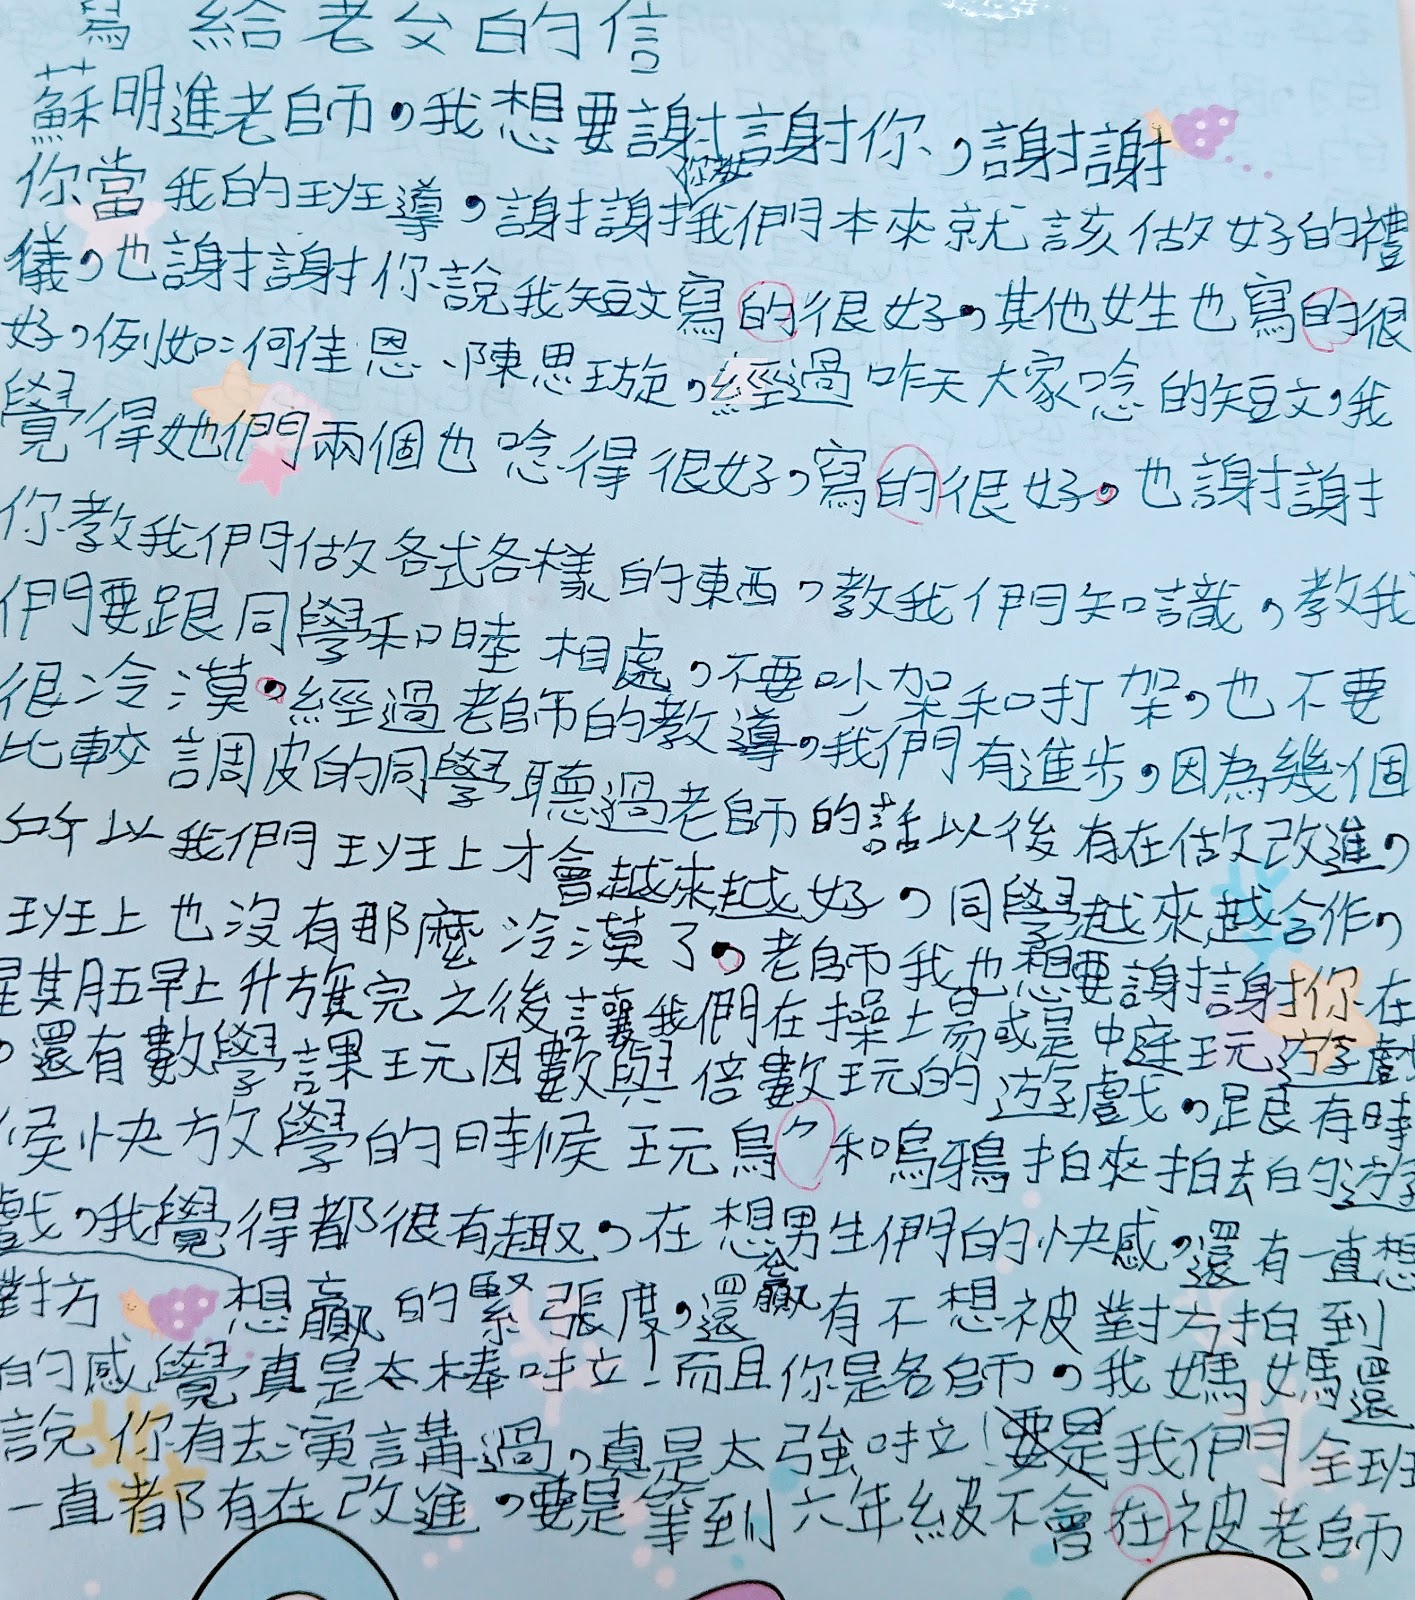 寫給老父的信
蘇明進老師，我想要謝謝你，謝謝
你當我的班導，謝謝你教我們本來就該做好的禮
儀，也謝謝你說我短文寫的很好。其他女生也寫的很
好，例如：何佳恩、陳思璇，經過昨天大家唸的短文，我
覺得她們兩個也唸得很好，寫的很好。也謝謝
你教我們做各式各樣的東西，教我們知識，教我
們要跟同學和睦相處，不要吵架和打架，也不要
很冷漠。經過老師的教導，我們有進步，因為幾個
比較調皮的同學聽過老師的話以後有在做改進，
所以我們班上才會越來越好，同學越來越合作，
班上也沒有那麼冷漠了。老師我也想要謝謝你在
星期五早上升旗完之後讓我們在操場或是中庭玩遊戲
，還有數學課玩因數與倍數玩的遊戲，跟有時
候快放學的時候玩烏ㄅ和烏鴉拍來拍去的遊
戲，我覺得都很有趣，在想男生們的快感，還有一直想
對方會贏想贏的緊張度，還有不想被對方拍到
的感覺真是太棒啦！而且你是名師，我媽媽還
說你有去演講過，真是太強啦！我們全班
一直都有在改進，要是等到六年級不會在被老師